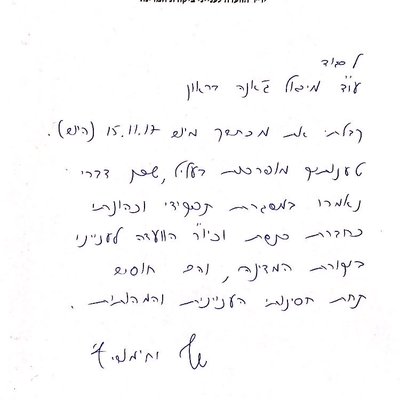 לכבוד
עו"ד
קבלתי את מכתבך מיום 15.11.17 (היום).
טענותיך מופרכות בעליל, שכן דברי
נאמרו במסגרת תפקידי וכהונתי
כחברת כנסת וכיו"ר הוועדה לענייני
ביקורת המדינה, והם חוסים
תחת חסינותי העניינית והמהותית.